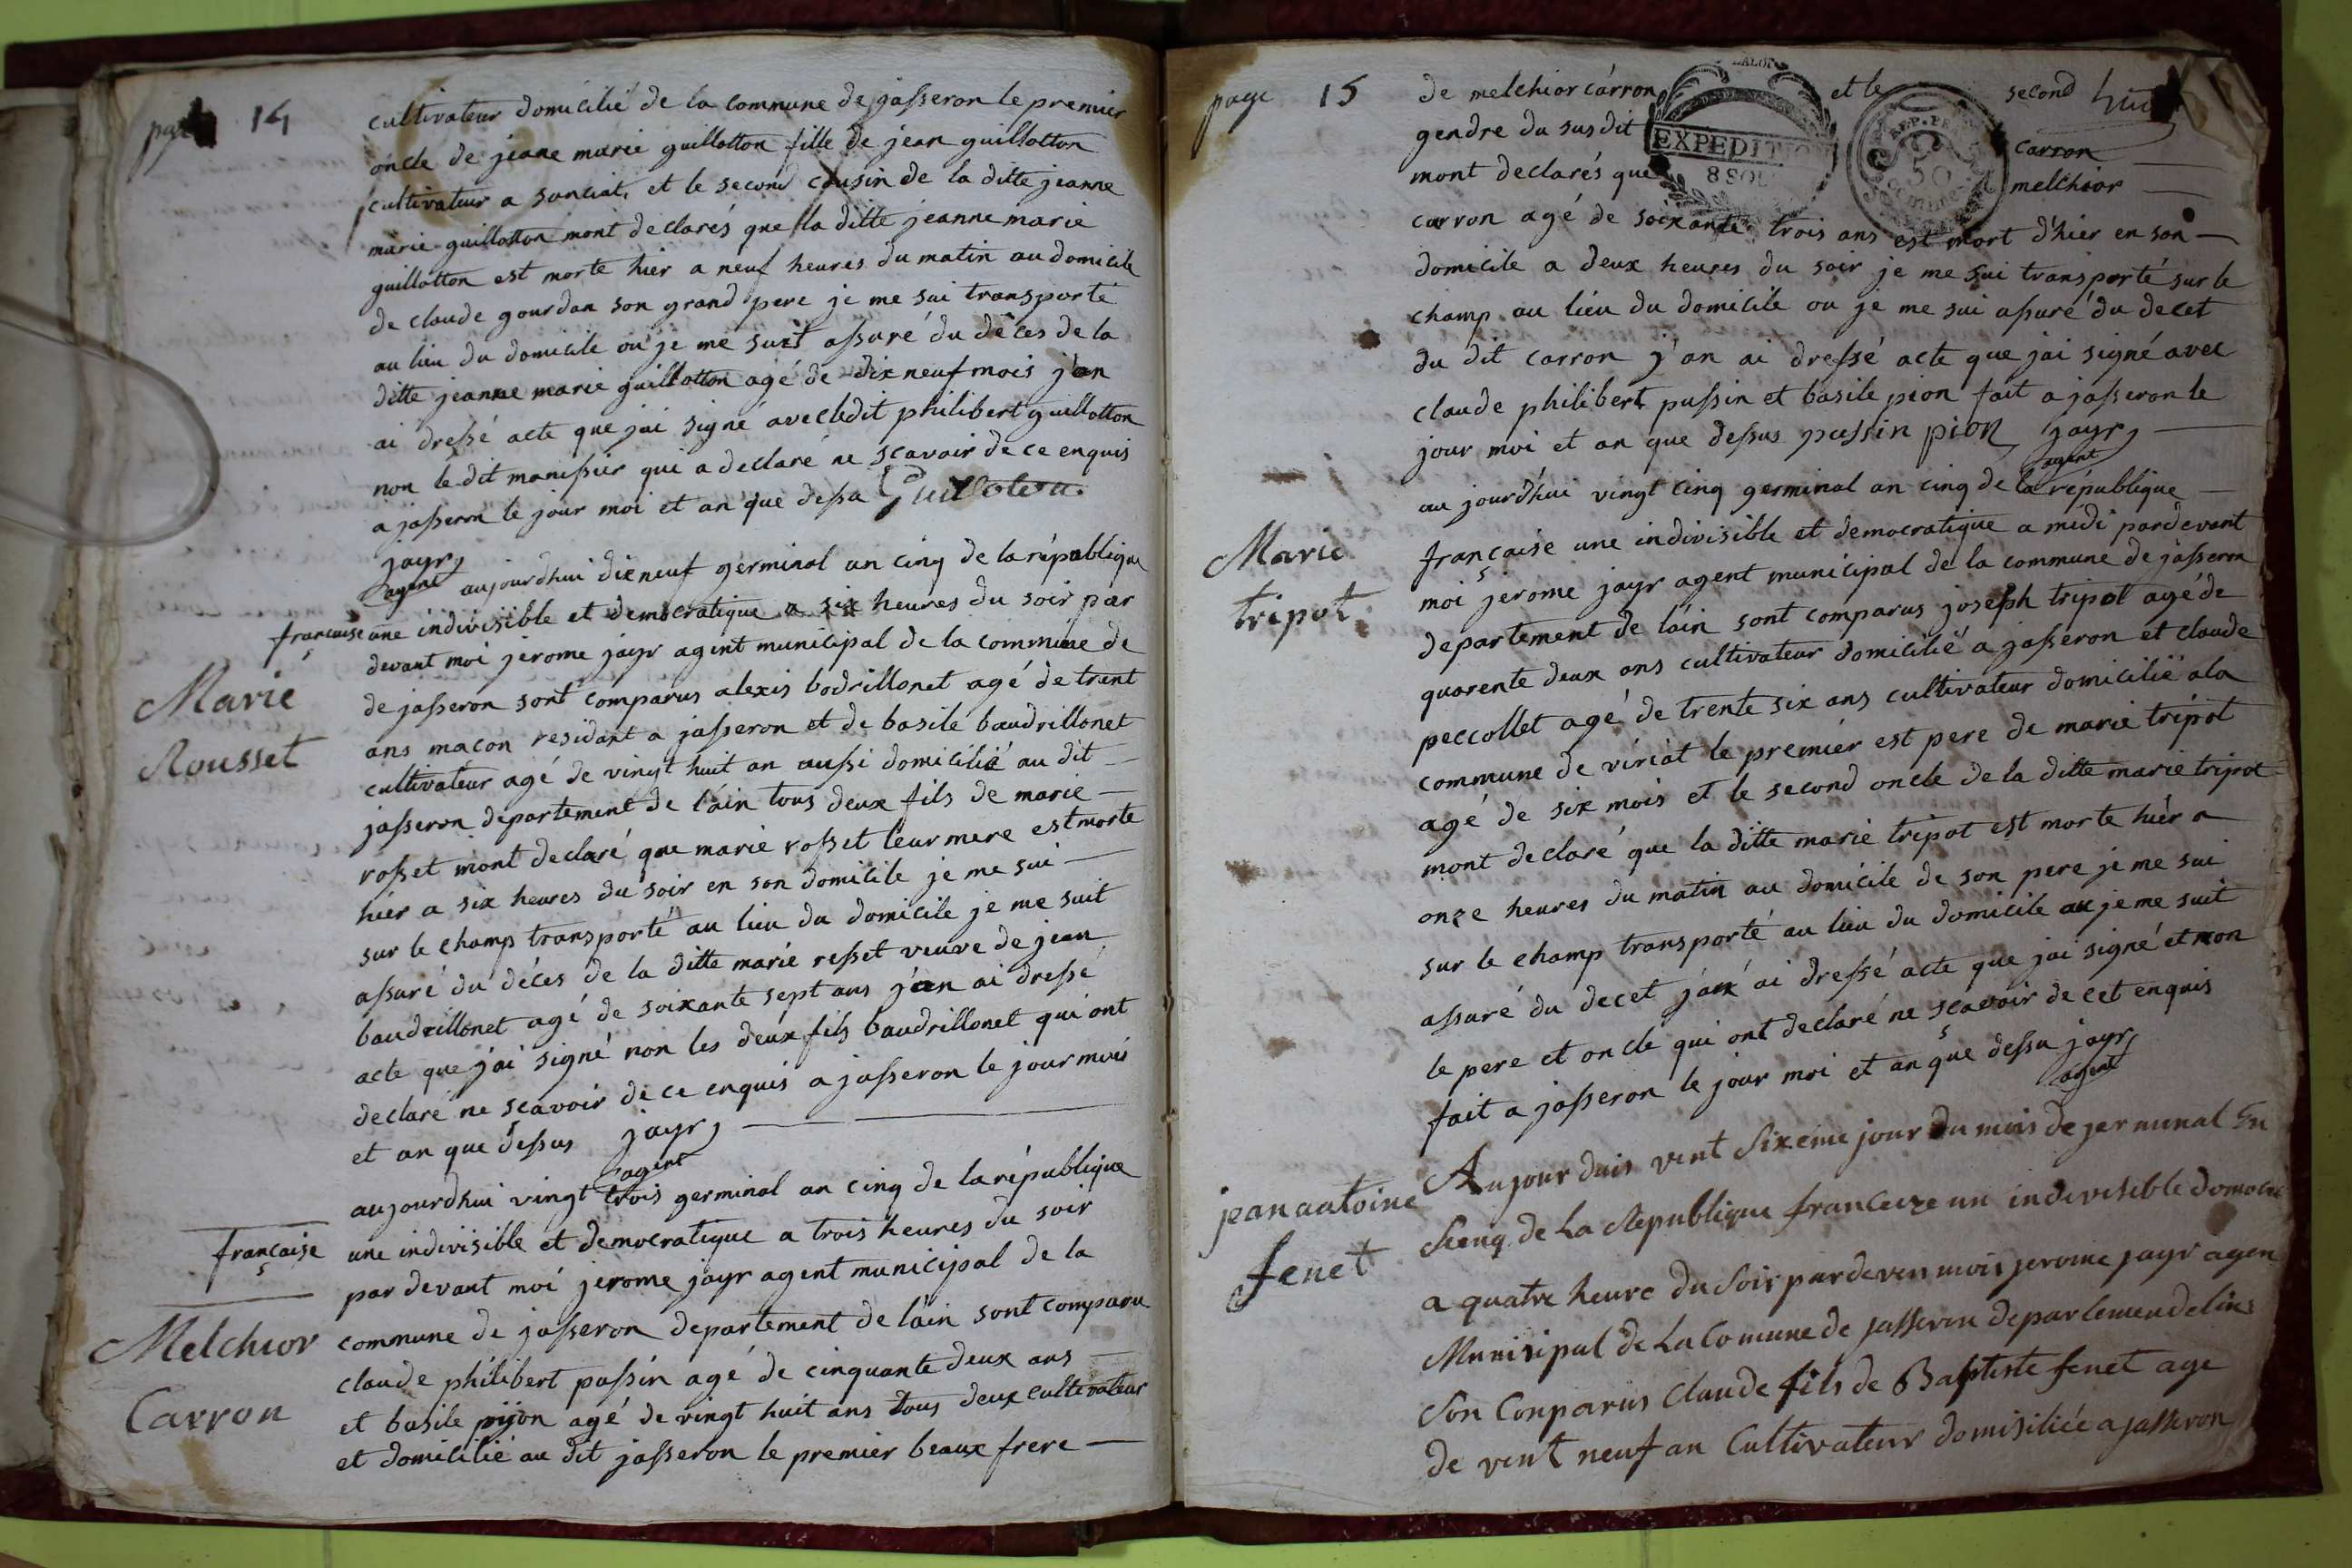 page 14
cultivateur domicilié de la commune de jasseron le premier
oncle de jeane marie guillotton fille de jean guillotton
cultivateur a sanciat, et le second cousin de la ditte jeanne
marie guillotton mont declarés que la ditte jeanne marie
guillotton est morte hier a neuf heures du matin au domicile
de claude gourdan son grand pere je me sui transporté
au lieu du domicile ou je me suit assuré du déces de la
ditte jeanne marie guillotton agé de dix neuf mois j'an
ai dressé acte que jai signé avec ledit philibert guillotton
non le dit manissier qui a declaré ne scavoir de ce enquis
a jasseron le jour moi et an que dessu Guilloton
jayr
agent aujourdhui dixneuf germinal an cinq de la république
française une indivisible et democratique a six heures du soir par
devant moi jerome jayr agent municipal de la commune de
Marie
Rousset
de jasseron sont comparus alexis bodrillonet agé de trent
ans macon residant a jasseron et de basile baudrillonet
cultivateur agé de vingt huit an aussi domicilié au dit
jasseron departement de l'ain tous deux fils de marie
rosset mont declaré que marie rosset leur mere est morte
hier a six heures du soir en son domicile je me sui
sur le champ transporté au lieu du domicile je me suit
assuré du déces de la ditte marie resset veuve de jean
baudrillonet agé de soixante sept ans j'an ai dressé
acte que j'ai signé non les deux fils baudrillonet qui ont
declaré ne scavoir de ce enquis a jasseron le jour mois
et an que dessus jayr
agent
aujourdhui vingt trois germinal an cinq de la république
française une indivisible et democratique a trois heures du soir
par devant moi jerome jayr agent municipal de la
Melchior
Carron
commune de jasseron departement de lain sont comparu
claude philibert passin agé de cinquante deux ans
et basile pijon agé de vingt huit ans tous deux cultivateur
et domicilié au dit jasseron le premier beaux frere
page 15
de melchior carron et le second
gendre du sus dit carron
mont declarés que melchior
EXPEDITION
8 SOLS
REP. FR.
50
carron agé de soixante trois ans est mort d'hier en son
domicile a deux heures du soir je me sui transporté sur le
champ au lieu du domicile ou je me sui assuré du decet
du dit carron j'an ai dressé acte que jai signé avec
claude philibert passin et basile pion fait a jasseron le
jour moi et an que dessus passin pion jayr
agent
au jourdhui vingt cinq germinal an cinq de la république
Marie
tripot
française une indivisible et democratique a midi pardevant
moi jerome jayr agent municipal de la commune de jasseron
departement de lain sont comparus joseph tripot agé de
quarente deux ans cultivateur domicilié a jasseron et claude
peccollet agé de trente six ans cultivateur domicilié a la
commune de viriat le premier est pere de marie tripot
agé de six mois et le second oncle de la ditte marie tripot
mont declaré que la ditte marie tripot est morte hiér a
onze heures du matin au domicile de son pere je me sui
sur le champ transporté au lieu du domicile ou je me suit
assuré du decet j'an ai dressé acte que jai signé et non
le pere et oncle qui ont declaré ne scavoir de cet enquis
fait a jasseron le jour moi et an que dessu jayr
agent
jean antoine
fenet
Aujourduis vent Sixéme jour du mois de germinal En
Sienq de La Republique franceize un indivisible
a quatre heure du Soir par deven mois jerome jayr agen
Munisipal de La Comune de jasseron
Son Conparus Claude fils de Baptiste fenet age
de vent neuf an Cultivateur domisiliée a jasseron